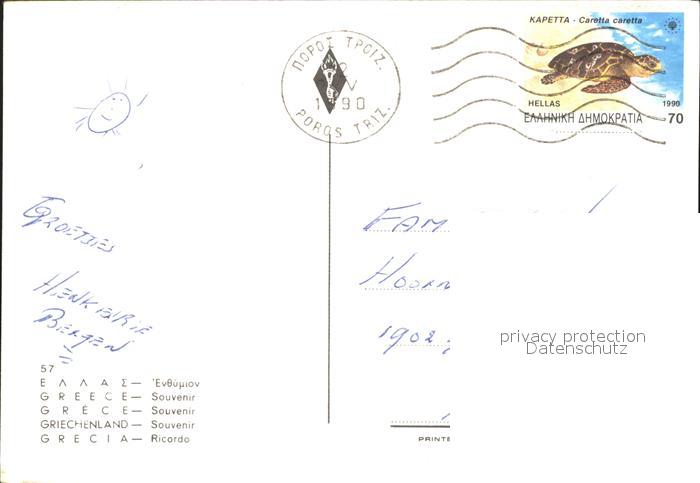 ΚΑΡΕΤΤΑ - Caretta caretta
HELLAS 1990
ΕΛΛΗΝΙΚΗ ΔΗΜΟΚΡΑΤΙΑ 70
ΠΟΡΟΣ ΤΡΟΙΖ.
V
1990
POROS TRIZ.
GROETJES
BERGEN
FAM
HOORN
1902
privacy protection
Datenschutz
57
ΕΛΛΑΣ — Ἐνθύμιον
GREECE — Souvenir
GRÈCE — Souvenir
GRIECHENLAND — Souvenir
GRECIA — Ricordo
PRINTE